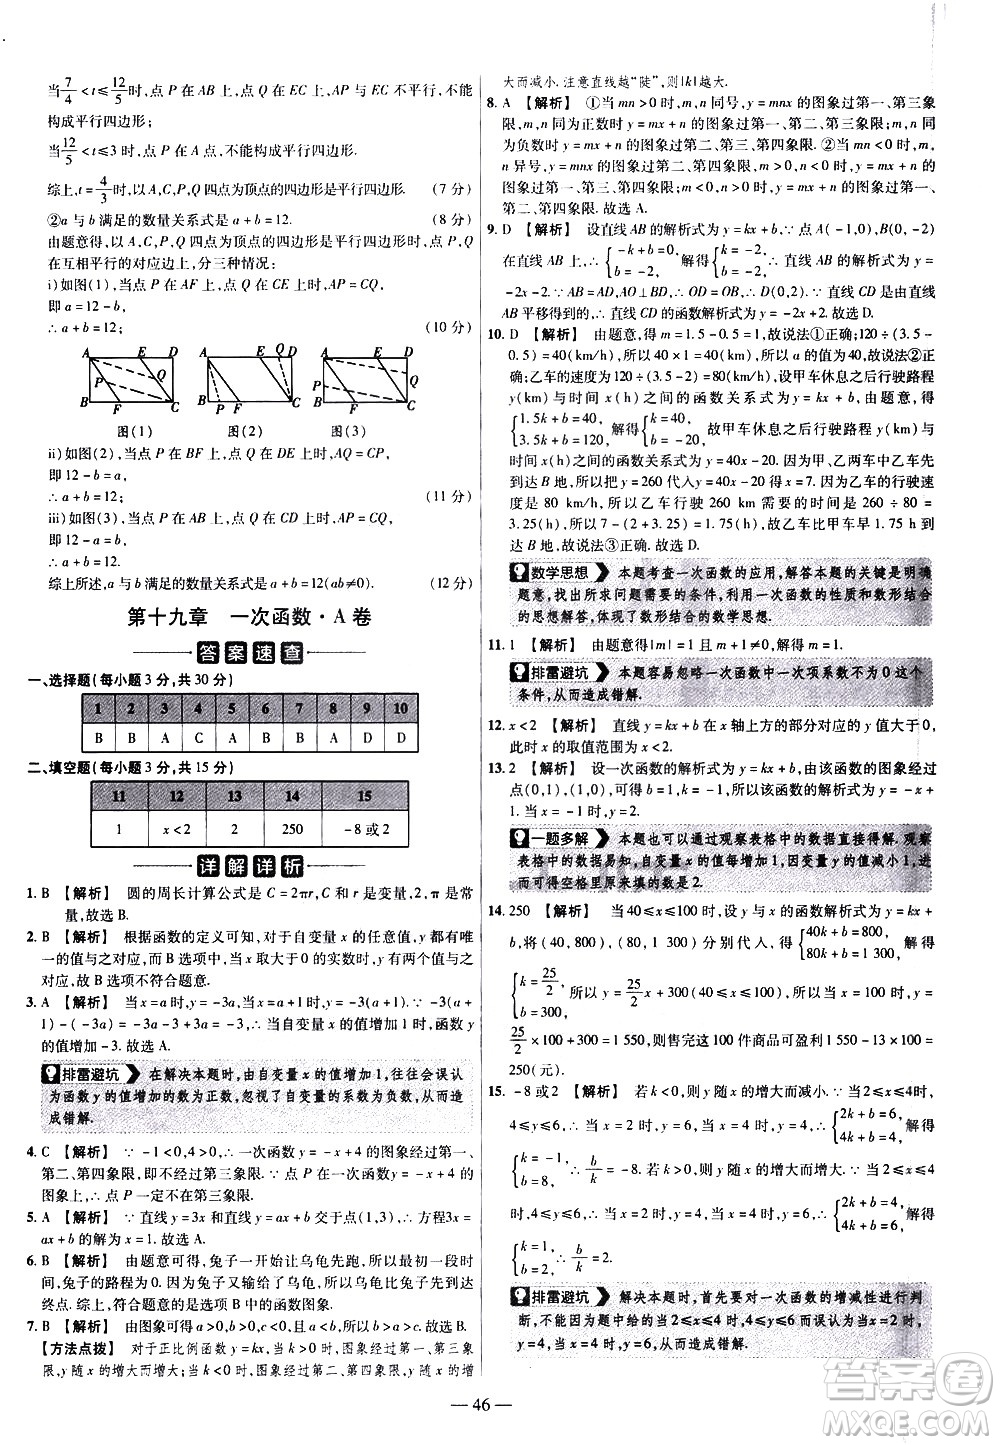 当7/4<t≤12/5时,点 P 在 AB 上,点 Q 在 EC 上,AP 与 EC 不平行,不能
构成平行四边形;
当12/5<t≤3 时,点 P 在 AB 上,点 Q 在 AE 上,不能构成平行四边形.
综上,t=4/3时,以 A,C,P,Q 为顶点的四边形是平行四边形. (7 分)
②a 与 b 满足的数量关系式是 a+b=12. (8 分)
由题意得,以 A,C,P,Q 四点为顶点的四边形是平行四边形时,点 P,Q
在互相平行的对应边上,分三种情况:
i)如图(1),当点 P 在 AF 上,点 Q 在 CE 上时,AP=CQ,
即 a=12-b,
∴ a+b=12; (10 分)
A E D B F C P Q A E Q D B P F C A E D P Q B F C
图(1) 图(2) 图(3)
ii)如图(2),当点 P 在 BF 上,点 Q 在 DE 上时,AQ=CP,
即 12-b=a,
∴ a+b=12; (11 分)
iii)如图(3),当点 P 在 AB 上,点 Q 在 CD 上时,AP=CQ,
即 12-a=b,
∴ a+b=12.
综上所述,a 与 b 满足的数量关系式是 a+b=12(ab≠0). (12 分)
第十九章 一次函数·A 卷
答案速查
一、选择题(每小题 3 分,共 30 分)
1 2 3 4 5 6 7 8 9 10
B B A C A B B A D D
二、填空题(每小题 3 分,共 15 分)
11 12 13 14 15
1 x<2 2 250 -8 或 2
详解详析
1. B 【解析】 圆的周长计算公式是 C=2πr,C 和 r 是变量,2,π 是常
量,故选 B.
2. B 【解析】 根据函数的定义可知,对于自变量 x 的任意值,y 都有唯
一的值与之对应,而 B 选项中,对于大于 0 的实数时,y 有两个值与之
对应,所以 B 选项不符合题意.
3. A 【解析】 当 x=a 时,y=-3a,当 x=a+1 时,y=-3(a+1). ∵ -3(a+
1)-(-3a)=-3a-3+3a=-3,∴ 当自变量 x 的值增加 1 时,函数 y
的值增加-3. 故选 A.
排雷避坑 在解决本题时,由自变量 x 的值增加 1,往往会误认
为函数 y 的值增加的数为正数,忽视了自变量的系数为负数,从而造
成错解.
4. C 【解析】 ∵ -1<0,4>0,∴ 一次函数 y=-x+4 的图象经过第一、
第二、第四象限,即不经过第三象限. ∵ 点 P 在一次函数 y=-x+4 的
图象上,∴ 点 P 一定不在第三象限.
5. A 【解析】 ∵ 直线 y=3x 和直线 y=ax+2 交于点(1,3),∴ 方程3x=
ax+2 的解为 x=1. 故选 A.
6. B 【解析】 由题意可得,兔子一开始让乌龟先跑,所以最初一段时
间,兔子的路程为 0. 又∵ 兔子输给了乌龟,∴ 乌龟比兔子先到达
终点. 综上,符合题意的是选项 B 中的函数图象.
7. B 【解析】 由图象可得 a>0,b>0,c<0,∴ 当 x=1 时,b>a>c. 故选 B.
【方法点拨】 对于正比例函数 y=kx,当 k>0 时,图象经过第一、第三象
限,y 随 x 的增大而增大;当 k<0 时,图象经过第二、第四象限,y 随 x 的增
大而减小. 注意直线越“陡”,则|k|越大.
8. A 【解析】 ①当 mn>0 时,m,n 同号,y=mnx 的图象过第一、第三象
限,m,n 同为正数时 y=mx+n 的图象过第一、第二、第三象限,m,n 同
为负数时 y=mx+n 的图象过第二、第三、第四象限. ②当 mn<0 时,m,
n 异号,y=mnx 的图象过第二、第四象限,m>0,n<0 时,y=mx+n 的
图象过第一、第三、第四象限,m<0,n>0 时,y=mx+n 的图象过第一、
第二、第四象限. 故选 A.
9. D 【解析】 设直线 AB 的解析式为 y=kx+b,∵ 点 A(-1,0),B(0,-2)
在直线 AB 上,∴ {-k+b=0, b=-2, 解得 {k=-2, b=-2, ∴ 直线 AB 的解析式为 y=
-2x-2. ∵ AD=AO,AO⊥BD,∴ OD=OB,∴ D(0,2). ∵ 直线 CD 由直线
AB 平移得到的,∴ 直线 CD 的函数解析式为 y=-2x+2. 故选 D.
10. D 【解析】 由题意,得 m=1.5-0.5=1,故说法①正确;120÷(3.5-
0.5)=40(km/h),所以 40×1=40(km),所以 a 的值为40,故说法②正
确;乙车的速度为120÷(3.5-2)=80(km/h),设甲车休息之后行驶路程
y(km) 与时间 x(h) 之间的函数关系式为 y=kx+b,由题意,得
{1.5k+b=40, 3.5k+b=120, 解得 {k=40, b=-20, 故甲车休息之后行驶路程 y(km)与
时间 x(h)之间的函数关系式为 y=40x-20,所以当甲、乙两车中先到
达 B 地的是乙车,把 y=260 代入 y=40x-20,得 x=7. 因为乙车的行驶速
度是 80 km/h,所以乙车行驶 260 km 需要的时间是 260÷80=
3.25(h),所以 7-(2+3.25)=1.75(h),故乙车比甲车早 1.75 h 到
达 B 地,故说法③正确. 故选 D.
数学思想 本题考查一次函数的应用,解答本题的关键是明确
题意,找出所求问题需要的条件,利用一次函数的性质和数形结合
的思想解答,体现了数形结合的数学思想.
11. 1 【解析】 由题意得 |m|=1 且 m+1≠0,解得 m=1.
排雷避坑 本题容易忽略一次函数中一次项系数不为 0 这个
条件,从而造成错解.
12. x<2 【解析】 直线 y=kx+b 在 x 轴上方的部分对应的 y 值大于 0,
此时 x 的取值范围为 x<2.
13. 2 【解析】 设一次函数的解析式为 y=kx+b,由该函数的图象经过
点(0,1),(1,0),可得 k=-1,b=1,所以该函数的解析式为 y=-x+
1. 当 x=-1 时,y=1+1=2.
一题多解 本题也可以通过观察表格中的数据直接得解. 观察
表格中的数据易知,自变量 x 的值每增加 1,y 的值减小 1,进
而可得空格里原来填的数是 2.
14. 250 【解析】 当 40≤x≤100 时,设 y 与 x 的函数解析式为 y=kx+
b,将(40,800),(80,1 300)分别代入,得 {40k+b=800, 80k+b=1 300, 解得
{k=25/2, b=300, 所以当 40≤x≤100 时,y=25/2x+300. 当 x=100 时,y=
25/2×100+300=1 550,则售完这 100 件商品可盈利 1 550-1 300=
250(元).
15. -8 或 2 【解析】 若 k<0,则 y 随 x 的增大而减小. ∵ 当 2≤x≤4 时,
4≤y≤6,∴ {2k+b=6, 4k+b=4, 解得 {k=-1, b=8, ∴ b/k=-8. 若 k>0,则 y 随 x 的增大而增大. ∵ 当 2≤x≤4
时,4≤y≤6,∴ {2k+b=4, 4k+b=6, 解得
{k=1, b=2, ∴ b/k=2. 综上,b/k的值是-8 或 2.
排雷避坑 解决本题时,首先要对一次函数的增减性进行判
断,不能因为题中给的当 2≤x≤4 时,4≤y≤6 而误认为当 x=2 时,
y=4,当 x=4 时,y=6,从而造成漏解.
— 46 —
答案圈
MXQE.COM